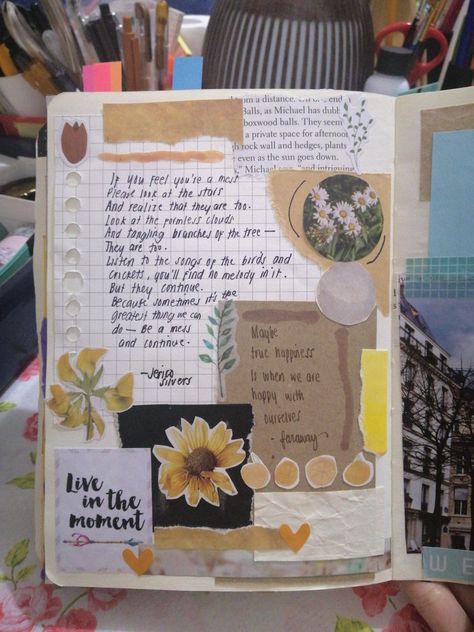 from a distance. On or end
Balls, as Michael has dubbed
boxwood balls. They seem
a private space for afternoon
rock wall and hedges, plants
even as the sun goes down.
If you feel you're a mess
Please look at the stars
And realize that they are too.
Look at the formless clouds
And tangling branches of the tree —
They are too.
Listen to the songs of the birds and
crickets, you'll find no melody in it.
But they continue.
Because sometimes it's the
greatest thing we can
do — Be a mess
and continue.
—Jerico
Silvers
Maybe
true happiness
Is when we are
happy with
ourselves
- faraway
Live
in the
moment
W E